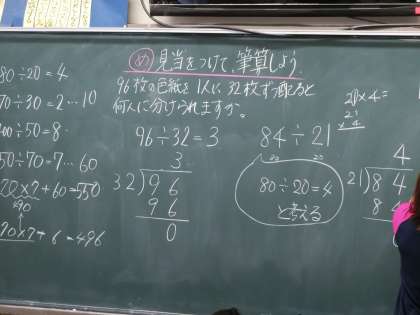 め 見当をつけて、筆算しよう。
96枚の色紙を1人に32枚ずつ配ると
何人に分けられますか。
80÷20=4
70÷30=2…10
00÷50=8
50÷70=7…60
70×7+60=550
490
70×7+6=496
96÷32=3
3
32)96
96
0
84÷21
80÷20=4
と考える
20×4=
21
×4
4
21)84
8